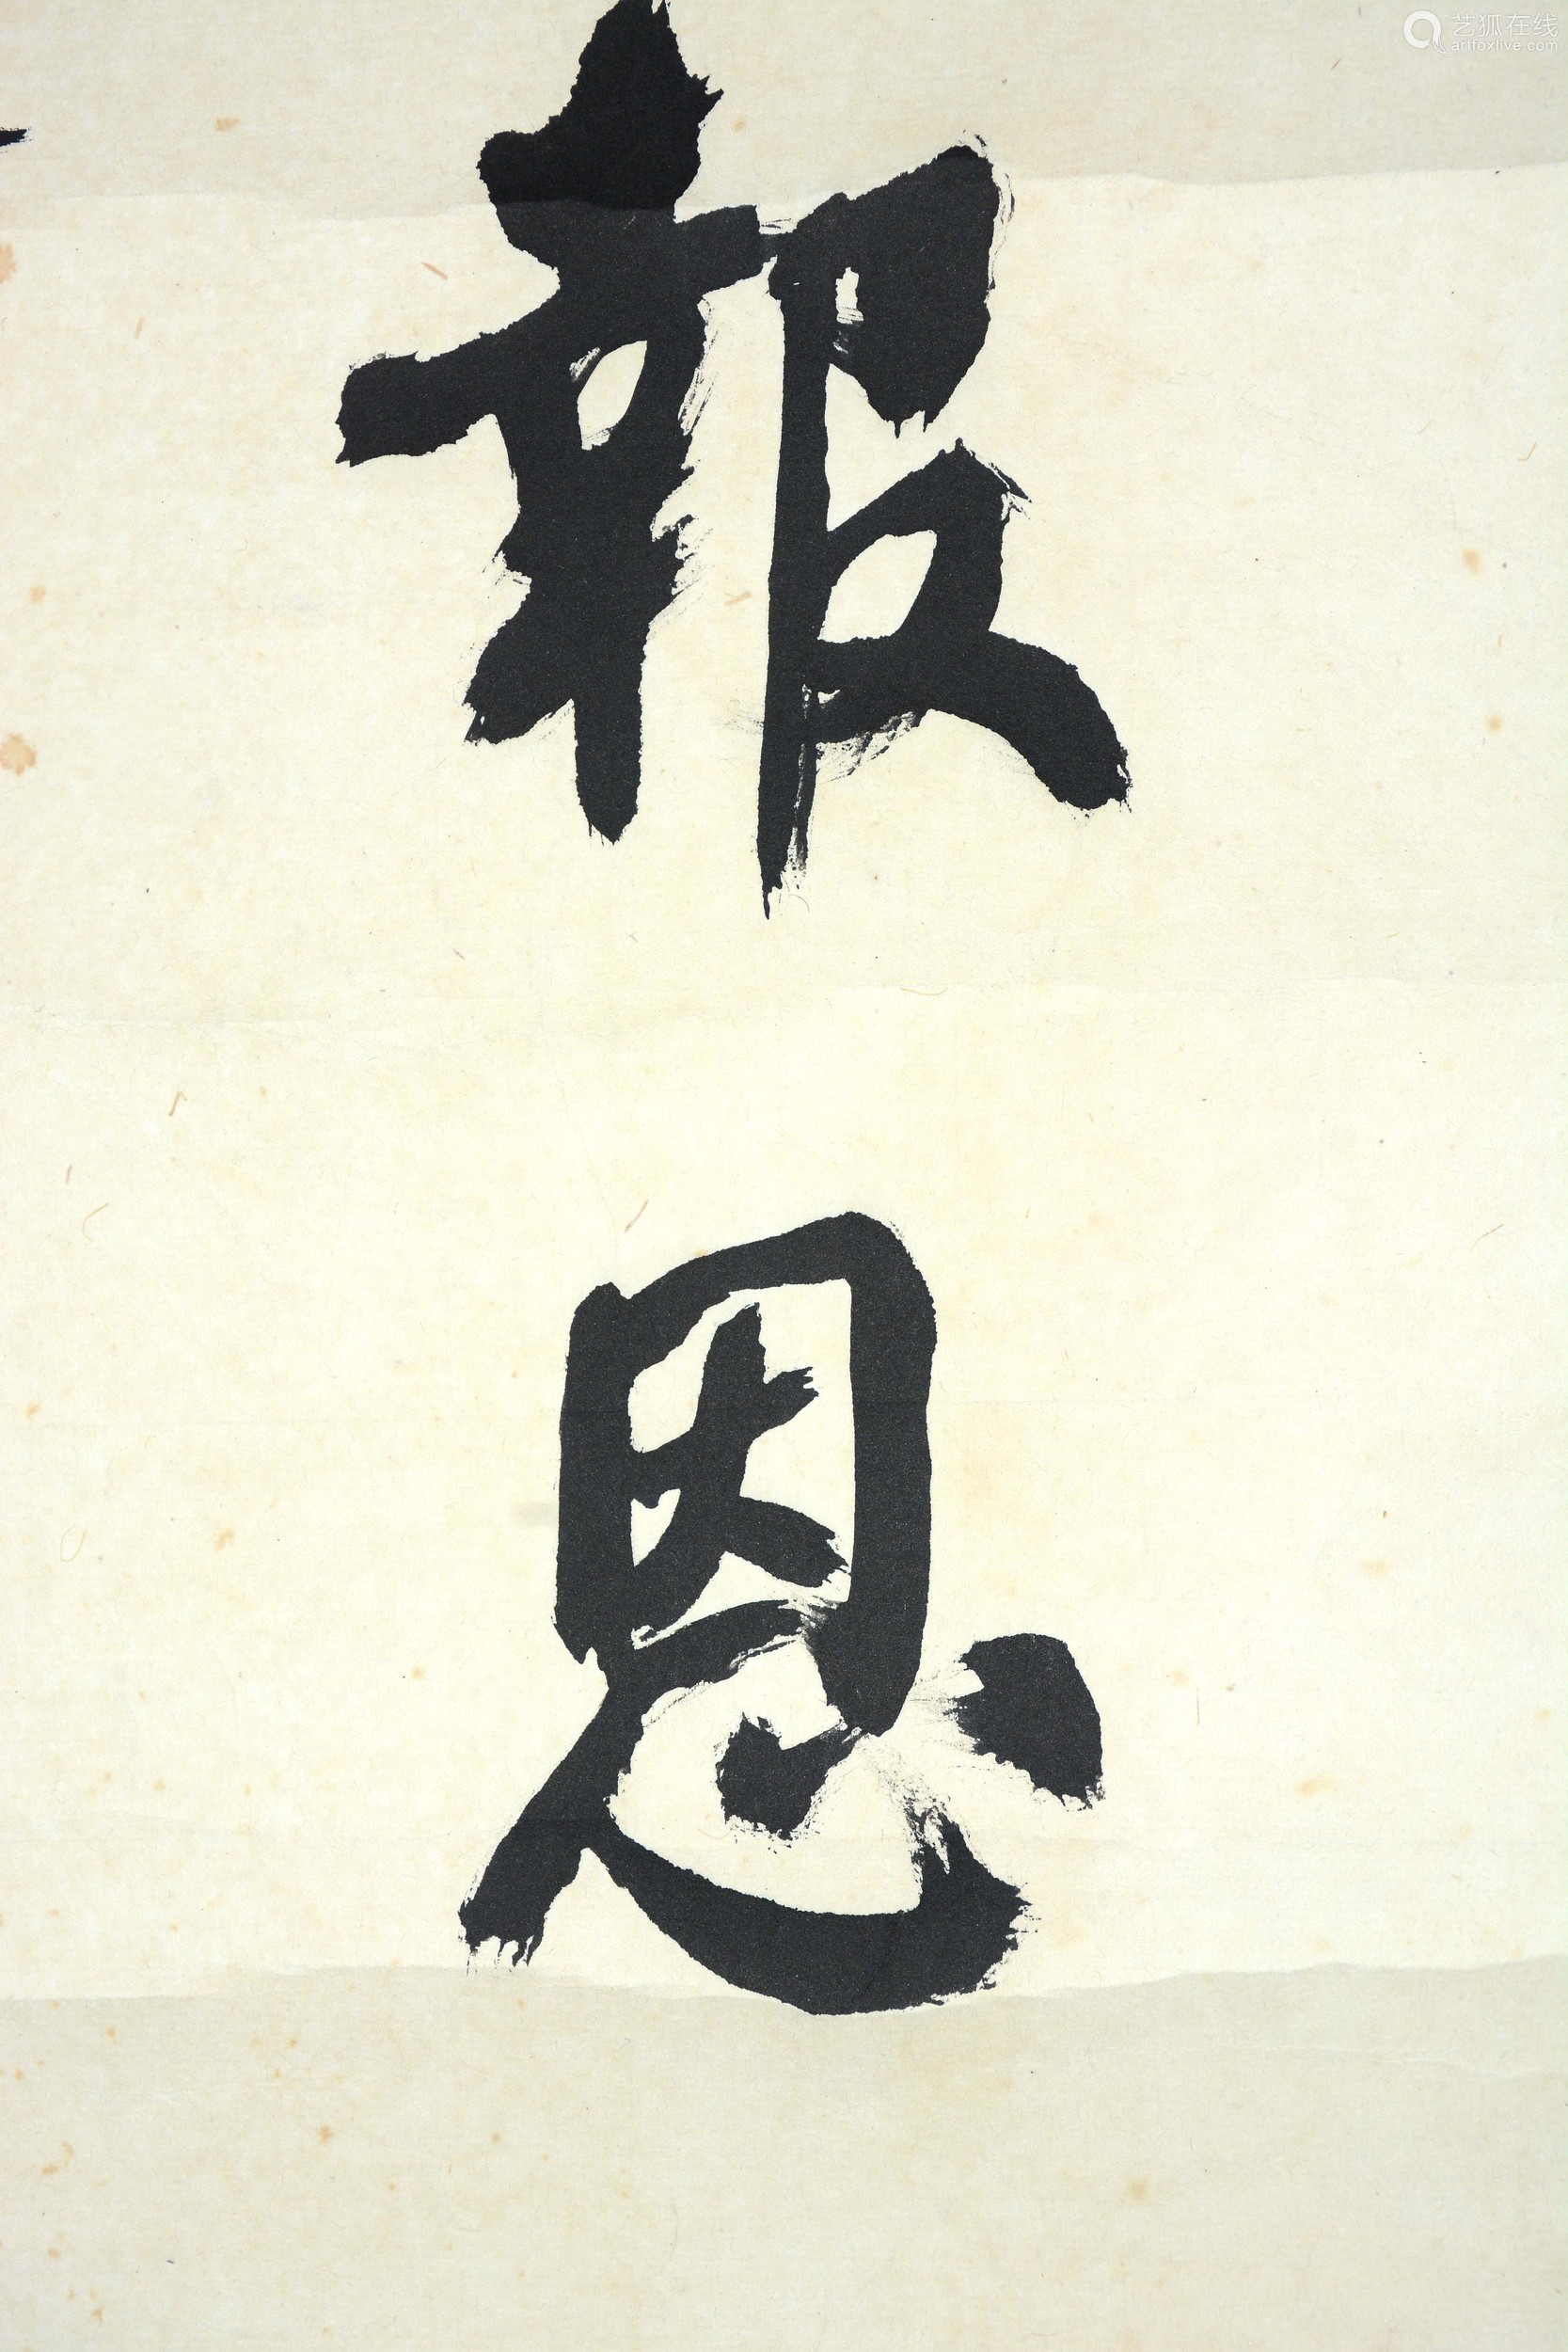 艺狐在线
artfoxlive.com
報
恩